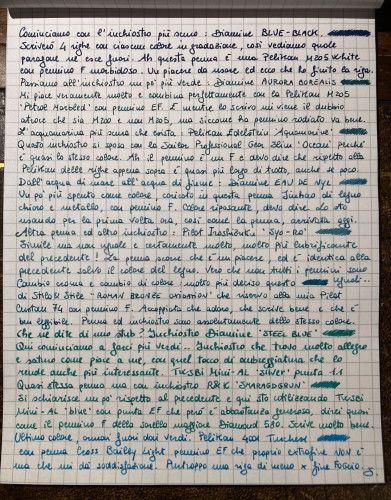 Cominciamo con l'inchiostro più scuro: Diamine BLUE-BLACK.
Scriverò 4 righe con ciascun colore in gradazione, così vediamo quale
paragone ne esce fuori. Ah questa penna è una Pelikan M205 White
con pennino F morbidoso. Un piacere da usare ed ecco che ho finito la riga.
Passiamo all'inchiostro un po' più verde: Diamine AURORA BOREALIS
Mi piace veramente molto e combina perfettamente con la Pelikan M205
'Petrol Marbled' con pennino EF. E mentre lo scrivo mi viene il dubbio
atroce che sia M200 e non M205, ma siccome ha pennino rodiato va bene.
L'acquamarina più scura che esista: Pelikan Edelstein 'Aquamarine'
Questo inchiostro si sposa con la Sailor Professional Gear Slim 'Ocean' perché
è quasi lo stesso colore. Ah il pennino è un F e devo dire che rispetto alla
Pelikan delle righe appena sopra è quasi più largo di tratto, anche se poco.
Dall'acqua di mare all'acqua di fiume: Diamine EAU DE NYL
Un po' più spento come colore, caricato in questa penna Jinhao di legno
chiaro e metallo, con pennino F. Colore riposante, devo dire. Lo sto
usando per la prima volta ora, così come la penna, arrivata oggi.
Altra penna ed altro inchiostro: Pilot Iroshizuku 'Syo-ro'
Simile ma non uguale e certamente molto, molto più lubrificante
del precedente! La penna scorre che è un piacere, ed è identica alla
precedente salvo il colore del legno. Vero che non tutti i pennini sono uguali...
Cambio penna e cambio di colore: molto più deciso questo
di Stilo & Stile "ROMAN BRONZES OXIDATION" che riservo alla mia Pilot
Custom 74 con pennino F. Accoppiata che adoro, che scrive bene e che è
ben leggibile. Penna ed inchiostro sono assolutamente dello stesso colore.
Che ne dite di uno step? Inchiostro Diamine 'STEEL BLUE'
Qui cominciamo a farci più verdi.. Inchiostro che trovo molto allegro
e saturo come piace a me, con quel tocco di ombreggiatura che lo
rende anche più interessante. TWSBI Mini-AL 'Silver' punta 1.1
Quasi stessa penna ma con inchiostro R&K 'SMARAGDGRÜN'
Si schiarisce un po' rispetto al precedente e qui sto utilizzando TWSBI
Mini-AL 'blue' con punta EF che però è abbastanza generosa, direi quasi
come il pennino F della sorella maggiore Diamond 580. Scrive molto bene.
Ultimo colore, ormai fuori dai verdi. Pelikan 4001 Turchese
con penna Cross Bailey Light pennino EF che proprio extrafine NON è
ma che mi dà soddisfazione. Purtroppo una riga di meno x fine FOGLIO